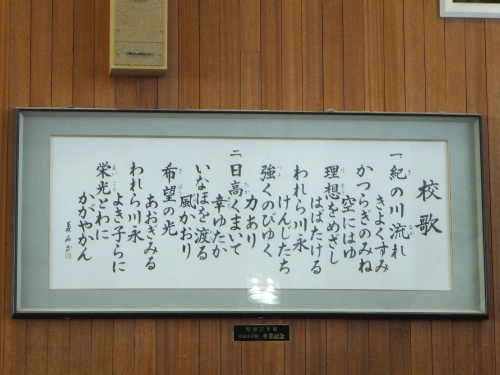 校歌
一 紀の川流れ
きよくすみ
かつらぎのみね
空にはゆ
理想をめざし
はばたける
われら川永
けんじたち
強くのびゆく
力あり
二 日高くまいて
幸ゆたか
いなほを渡る
風かおり
希望の光
あおぎみる
われら川永
よき子らに
栄光とわに
かがやかん
卒業記念